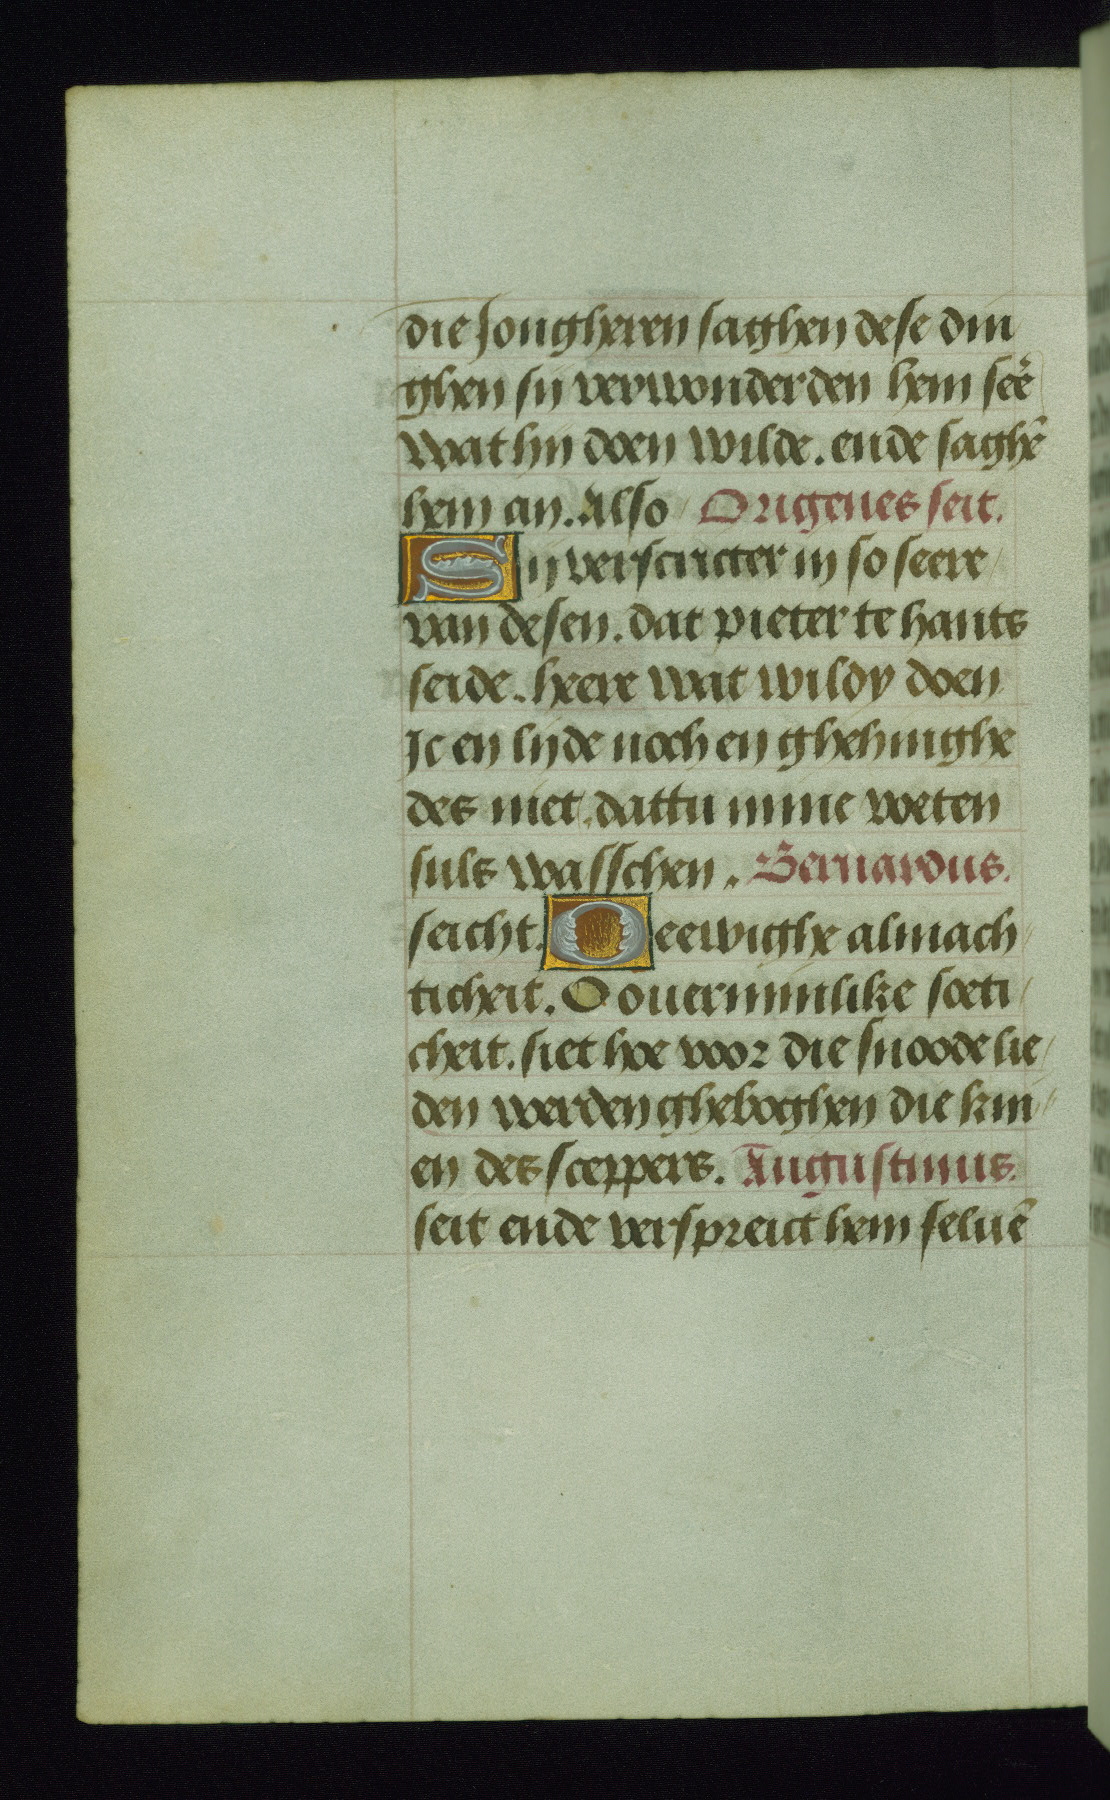 die Jongheren saghen dese din
ghen sij verwonderden hem seē
wat hij doen wilde. ende saghē
hem an. Also Origenes seit.
Sij verscricter in so seere
van desen. dat pieter te hants
seide. heere wat wildy doen
Ic en lijde noch en ghehinghe
des niet. dattu mine weten
suls wasschen. Bernardus.
seicht. O eewighe almach
ticheit. O ouerminlike soeti
cheit. siet hoe voor die snoode lie
den werden gheboghen die knī
en des sceppers. Augustinus.
seit ende verspreict hem seluē